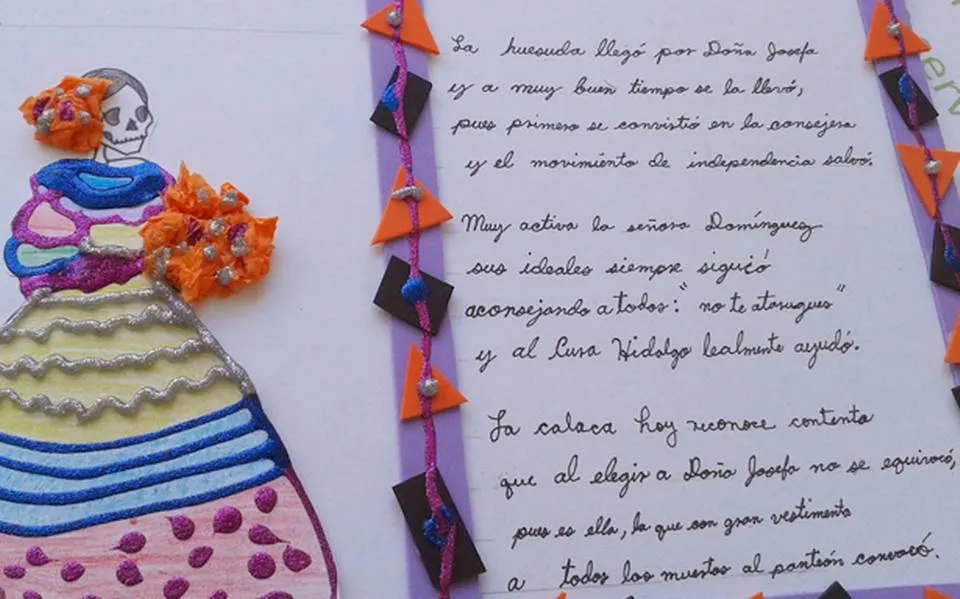 La huesuda llegó por Doña Josefa
y a muy buen tiempo se la llevó,
pues primero se convirtió en la consejera
y el movimiento de independencia salvó.
Muy activa la señora Domínguez
sus ideales siempre siguió
aconsejando a todos: "no te atarugues"
y al Cura Hidalgo lealmente ayudó.
La calaca hoy reconoce contenta
que al elegir a Doña Josefa no se equivocó,
pues es ella, la que con gran vestimenta
a todos los muertos al panteón convocó.